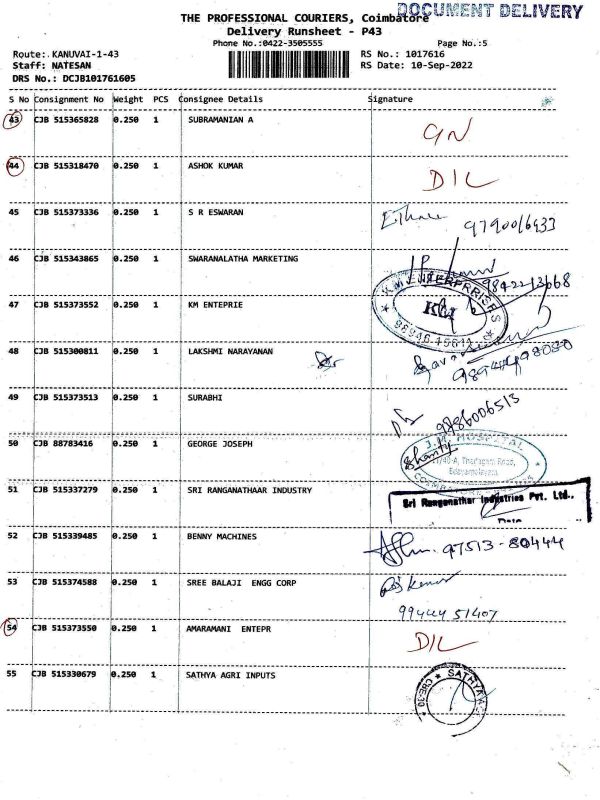 DOCUMENT DELIVERY
THE PROFESSIONAL COURIERS, Coimbatore
Delivery Runsheet - P43
Phone No.:0422-3505555 Page No.:5
Route: KANUVAI-1-43 RS No.: 1017616
Staff: NATESAN RS Date: 10-Sep-2022
DRS No.: DCJB101761605
S No Consignment No Weight PCS Consignee Details Signature
43 CJB 515365828 0.250 1 SUBRAMANIAN A
44 CJB 515318470 0.250 1 ASHOK KUMAR DIL
45 CJB 515373336 0.250 1 S R ESWARAN
9790016933
46 CJB 515343865 0.250 1 SWARANALATHA MARKETING
98422-13668
47 CJB 515373552 0.250 1 KM ENTEPRIE
KM ENTERPRISES
48 CJB 515300811 0.250 1 LAKSHMI NARAYANAN
49 CJB 515373513 0.250 1 SURABHI
9786006513
50 CJB 88783416 0.250 1 GEORGE JOSEPH
J.M. HOSPITAL
Shanty
51 CJB 515337279 0.250 1 SRI RANGANATHAAR INDUSTRY
Sri Ranganathar Industries Pvt. Ltd.,
52 CJB 515339485 0.250 1 BENNY MACHINES 97513-80444
53 CJB 515374588 0.250 1 SREE BALAJI ENGG CORP
99444 51407
54 CJB 515373550 0.250 1 AMARAMANI ENTEPR DIL
55 CJB 515330679 0.250 1 SATHYA AGRI INPUTS
SATHYA